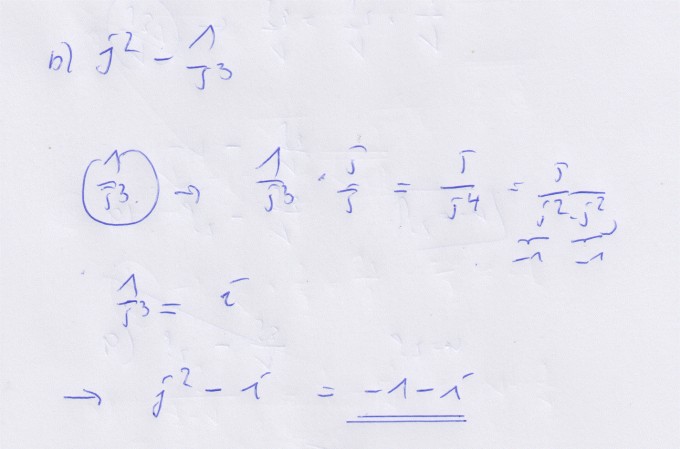 b) j² - 1/j³
1/j³ → 1/j³ · j/j = j/j⁴ = j/(j²·j²)
-1 -1
1/j³ = i
→ j² - i = -1 - i